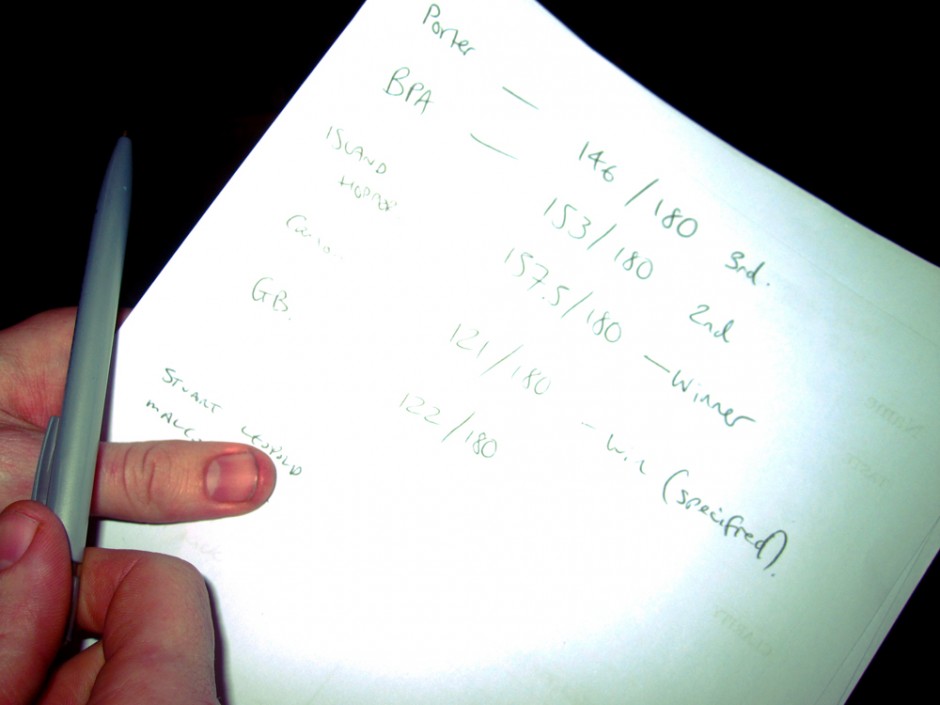 Porter — 146/180 3rd.
BPA — 153/180 2nd
ISLAND HOPPER 157.5/180 — Winner
121/180 - Win (specified).
GB. 122/180
STUART LEOPOLD